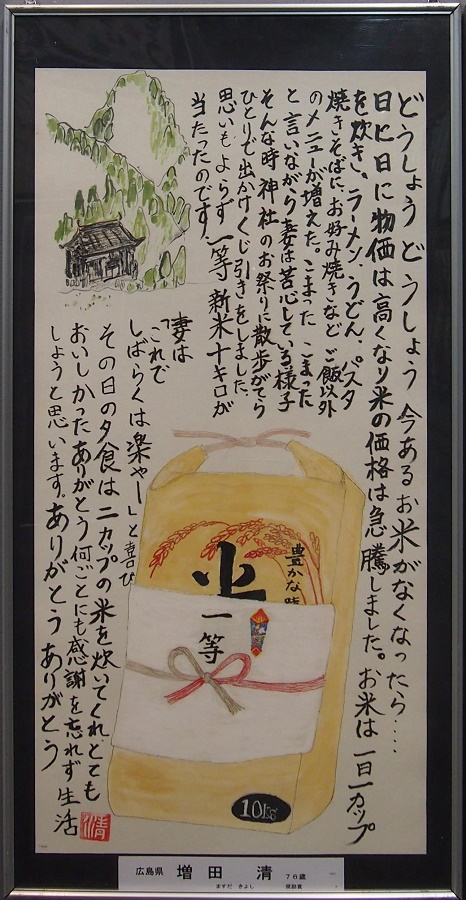 どうしょう どうしょう 今あるお米がなくなったら‥‥
日に日に物価は高くなり米の価格は急騰しました。お米は一日一カップ
を炊き、ラーメン、うどん、パスタ
焼きそばに、お好み焼きなど ご飯以外
のメニューが増えた。こまった こまった
と言いながら妻は苦心している様子
そんな時神社のお祭りに散歩がてら
ひとりで出かけくじ引きをしました。
思いもよらず一等 新米十キロが
当たったのです。
妻は
「これで
しばらくは楽やー」と喜び
その日の夕食は二カップの米を炊いてくれ、とても
おいしかったありがとう何ごとにも感謝を忘れず生活
しょうと思います。ありがとう ありがとう
清
豊かな味
米
一等
10kg
広島県 増田 清 76歳
ますだ きよし 奨励賞